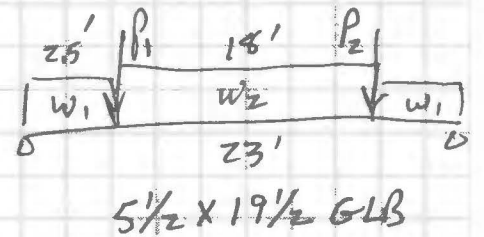 2.5' P1 18' P2
w1 w2 w1
23'
5 1/2 x 19 1/2 GLB